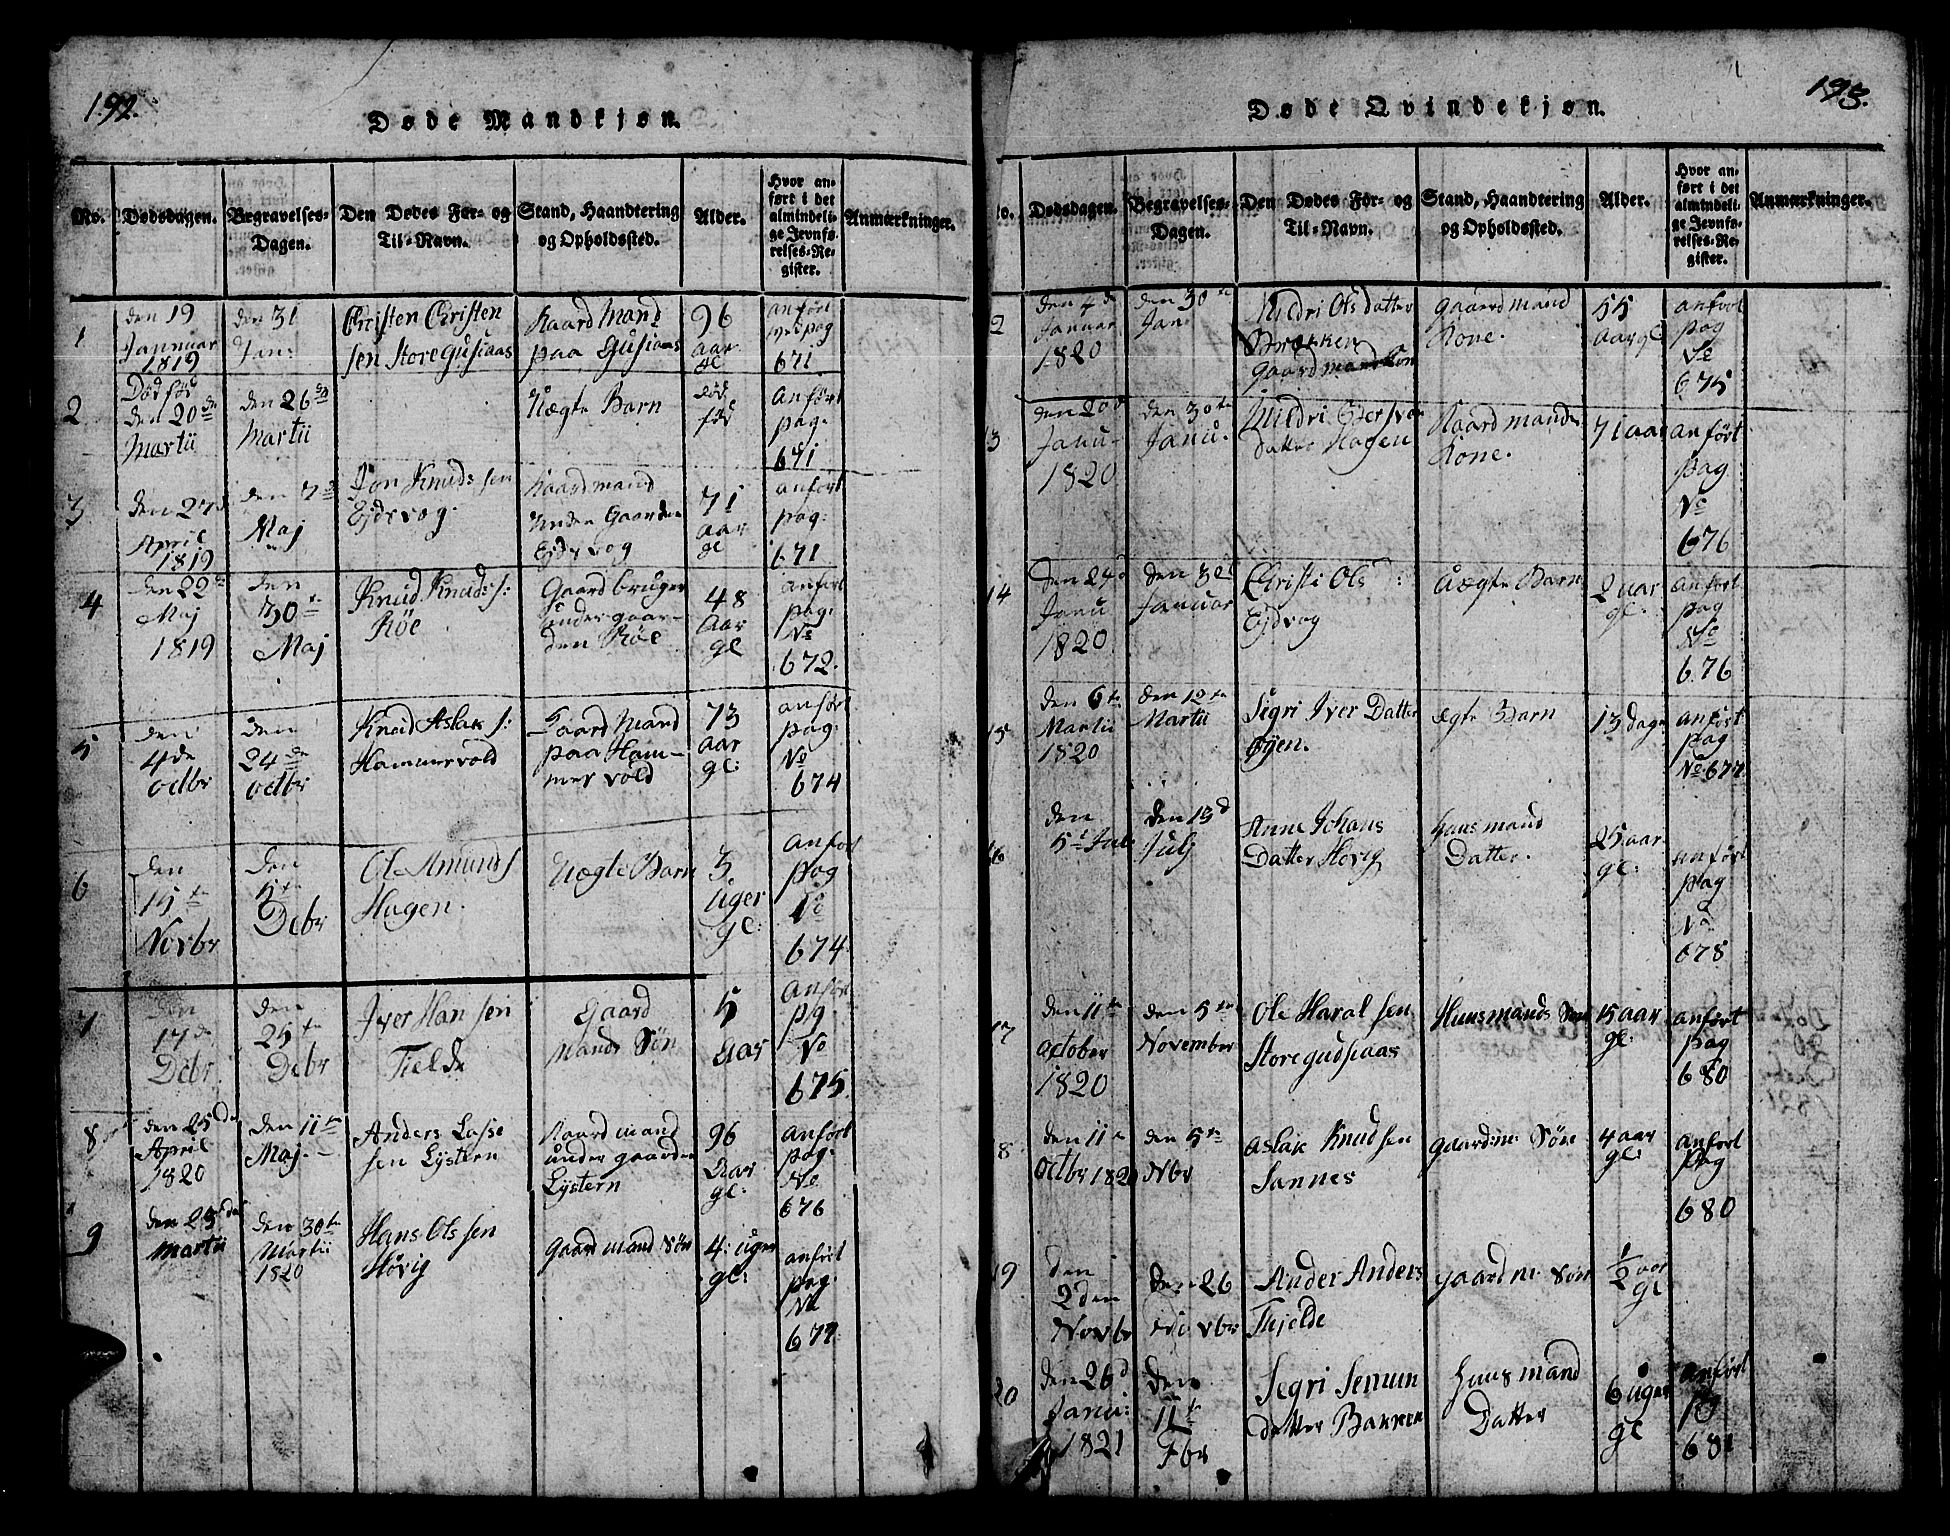 192.
Døde Mandkjøn.
No.
Dødsdagen.
Begravelses-
Dagen.
Den Dødes For- og
Til-Navn.
Stand, Haandtering
og Opholdssted.
Alder.
Hvor an-
ført i det
almindeli-
ge Jevnfø-
relses-Re-
gister.
Anmærkninger.
1
den 19
Januar
1819
den 31
Jan:
Christen Christen
sen Storegusiaas
Gaard Mand
paa Gusiaas
96
aar
gl
anført
pag
671
2
Død fød
den 20de
Martii
den 26
Martii
Uægte Barn
død
fød
anført
pag.
671
3
den 27d
April
1819
den 7d
Maj
Jon Knuds sen
Ejdsvog.
Gaardmand
Under Gaarden
Ejdsvog
71
aar
gl
anført
pag:
671
4
den 22d
Maj
1819
den
30te
Maj
Knud Knuds:
Röe
Gaard bruger
under gaar-
den Röe
48
Aar
gl
anført
pag:
No
672.
5
den
4de
octbr
den
24de
octbr
Knud Aslak s:
Hammervold
Gaard Mand
paa Ham-
mervold
73
aar
gl:
anført
pag:
No
674
6
den
15te
Novbr
den
5te
Debr
Ole Amunds
Hagen.
Uægte Barn
3.
Uger
gl:
anført
pag
No
674
7
den
17de
Debr
den
25te
Debr
Iver Hansen
Tielde
Gaard
Mands Søn
5
Aar
anført
pg.
No
675.
8
den 25de
April
1820
den 11te
Maj.
Anders Lasse
sen Lystern
Gaard mand
under gaarden
Lystern
96
Aar
gl:
anført
pag:
No
676
9
den 25de
Martii
den 30te
Martii
1820
Hans Ols sen
Høvig
Gaard mand Søn
4: uger
gl:
anført
pag.
No
677
193.
Døde Qvindekjøn.
No.
Dødsdagen.
Begravelses-
Dagen.
Den Dødes For- og
Til-Navn.
Stand, Haandtering
og Opholdssted.
Alder.
Hvor an-
ført i det
almindeli-
ge Jevnfø-
relses-Re-
gister.
Anmærkninger.
2
den 4de
Januar
1820
den 30te
Jan:
Gudri Ols datter
Brækken
gaardmand Kon
gaard mand
Kone.
55
aar gl
anført
pag
No
675
3
den 20d
Janu-
1820
den 30te
Janu.
Guldri Eders
datter Hagen
Gaard mands
Kone.
71 aar
anført
pag
No
676
14
den 24d
Janu
1820
den 30t
Januar
Christi Ols:
Ejdvog
Uægte Barn
2 aar
gl:
anført
pag
No
676
15
den 6te
Martii
1820
den 12te
Martii
Segri Iver Datter
Øyen.
ægte Barn
13 dage
anført
pag
No 677
16
den
5t Juli
den 13d
Julj
Anne Johans
Datter Hovig
huus mand
Datter.
25 aar
gl:
anført
pag
No
678
17
den 11te
october
1820
den 5te
November
Ole Haralsen
Storegudsiaas
Huusmands Søn
15 aar
gl:
anført
pag
680
8
den 11te
octbr 1820
den 5te
Nbr
Aslak Knudsen
Sannes
gaardm: Søn
4 aar
gl:
anført
pag
680
19
den
2den
Novbr
den 26
Novbr
Ander Anders
Thjelde
gaard m: Søn
½ aar
gl
20
den 26d
Janu:
1821
den
11te
Fbr
Segri Semun
datter Bakken
huus mand
Datter
6 uger
gl
anført
pg
681